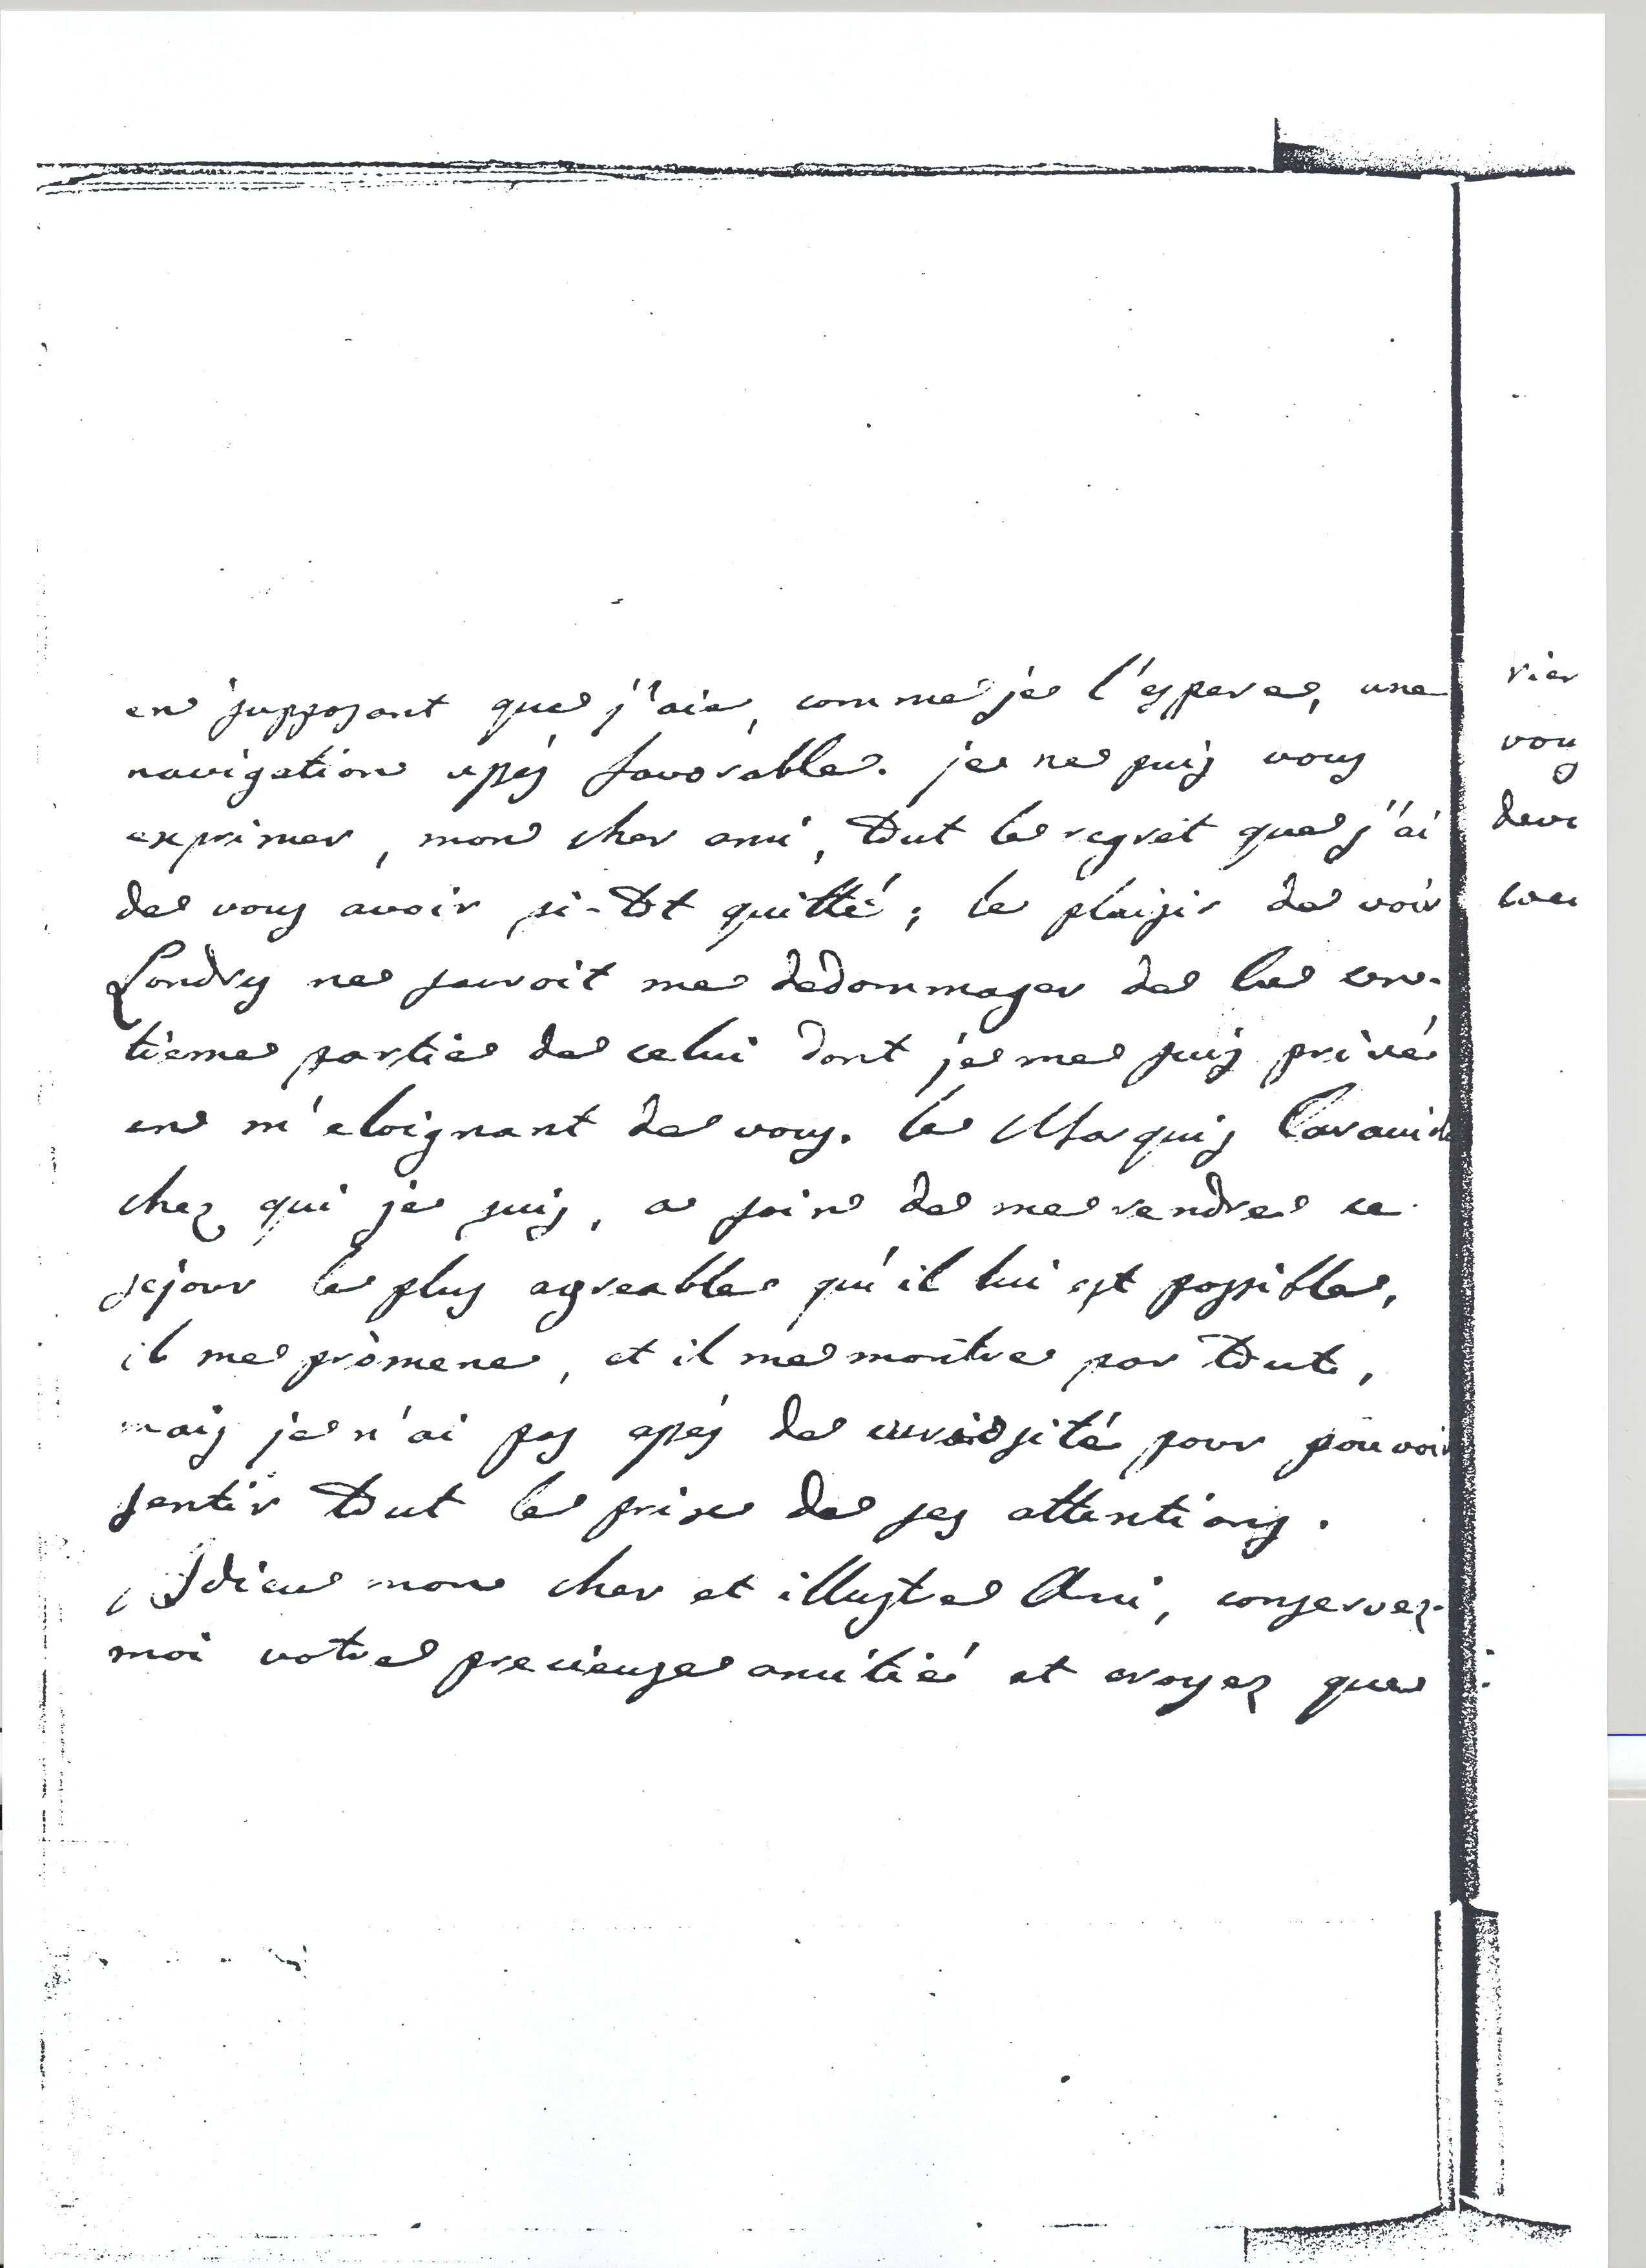 en supposant que j'aie, comme je l'espere, une
navigation assés favorable. je ne puis vous
exprimer, mon cher ami, tout le regret que j'ai
de vous avoir si-tot quitté; le plaisir de voir
Londres ne sauroit me dedommager de la cen-
tieme partie de celui dont je me suis privé
en m'eloignant de vous. le Marquis Caraccioli
chez qui je suis, a soin de me rendre ce
sejour le plus agreable qu'il lui est possible,
il me promene, et il me montre par tout,
mais je n'ai pas assés de curiosité pour pouvoir
sentir tout le prix de ses attentions.
Adieu mon cher et illustre Ami, conservez-
moi votre precieuse amitié et croyez que
rien
vous